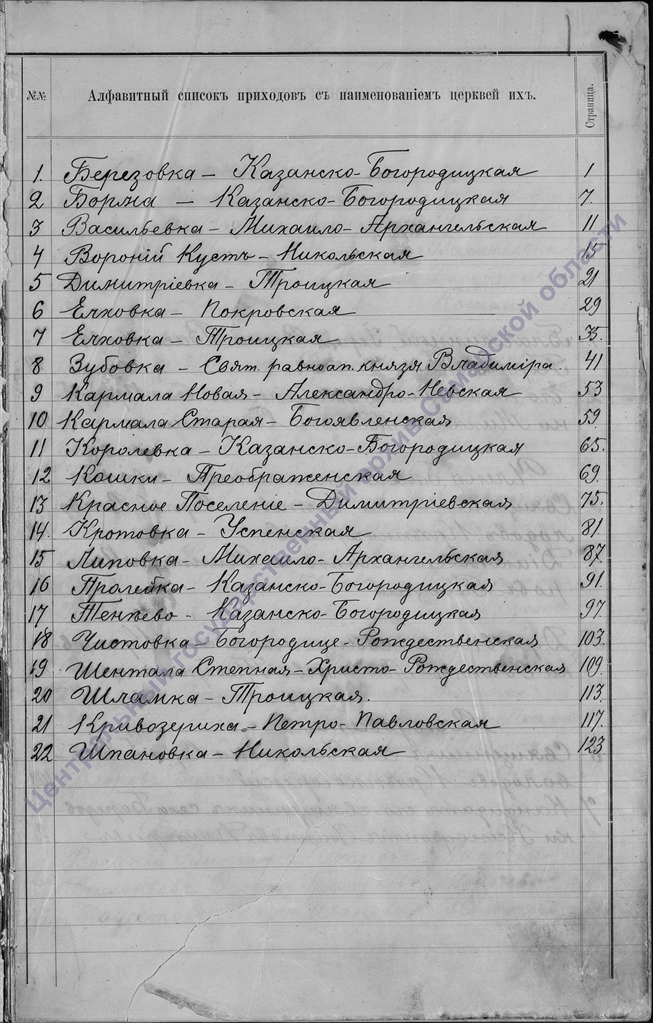 №№ Алфавитный списокъ приходовъ съ наименованіемъ церквей ихъ. Страница.
1. Березовка – Казанско-Богородицкая 1
2 Борма – Казанско-Богородицкая 7.
3 Васильевка – Михаило-Архангельская 11
4 Вороній Кустъ – Никольская 15
5 Димитріевка – Троицкая 21
6 Елховка – Покровская 29
7 Елховка – Троицкая 35.
8 Зубовка – Свят. равноап. князя Владиміра. 41
9 Кармала Новая – Александро-Невская 53
10 Кармала Старая – Богоявленская 59.
11 Королевка – Казанско-Богородицкая 65.
12 Кошки – Преображенская 69.
13 Красное Поселеніе – Димитріевская 75.
14. Кротовка – Успенская 81.
15 Липовка – Михаило-Архангельская 87.
16 Пролейка – Казанско-Богородицкая 91.
17 Тенѣево – Казанско-Богородицкая 97.
18 Чистовка – Богородице-Рождественская 103.
19 Шентала Степная – Христо-Рождественская 109.
20 Шламка – Троицкая. 113.
21 Кривозериха – Петро-Павловская 117.
22 Шпановка – Никольская 123.
Центральный государственный архив Самарской области